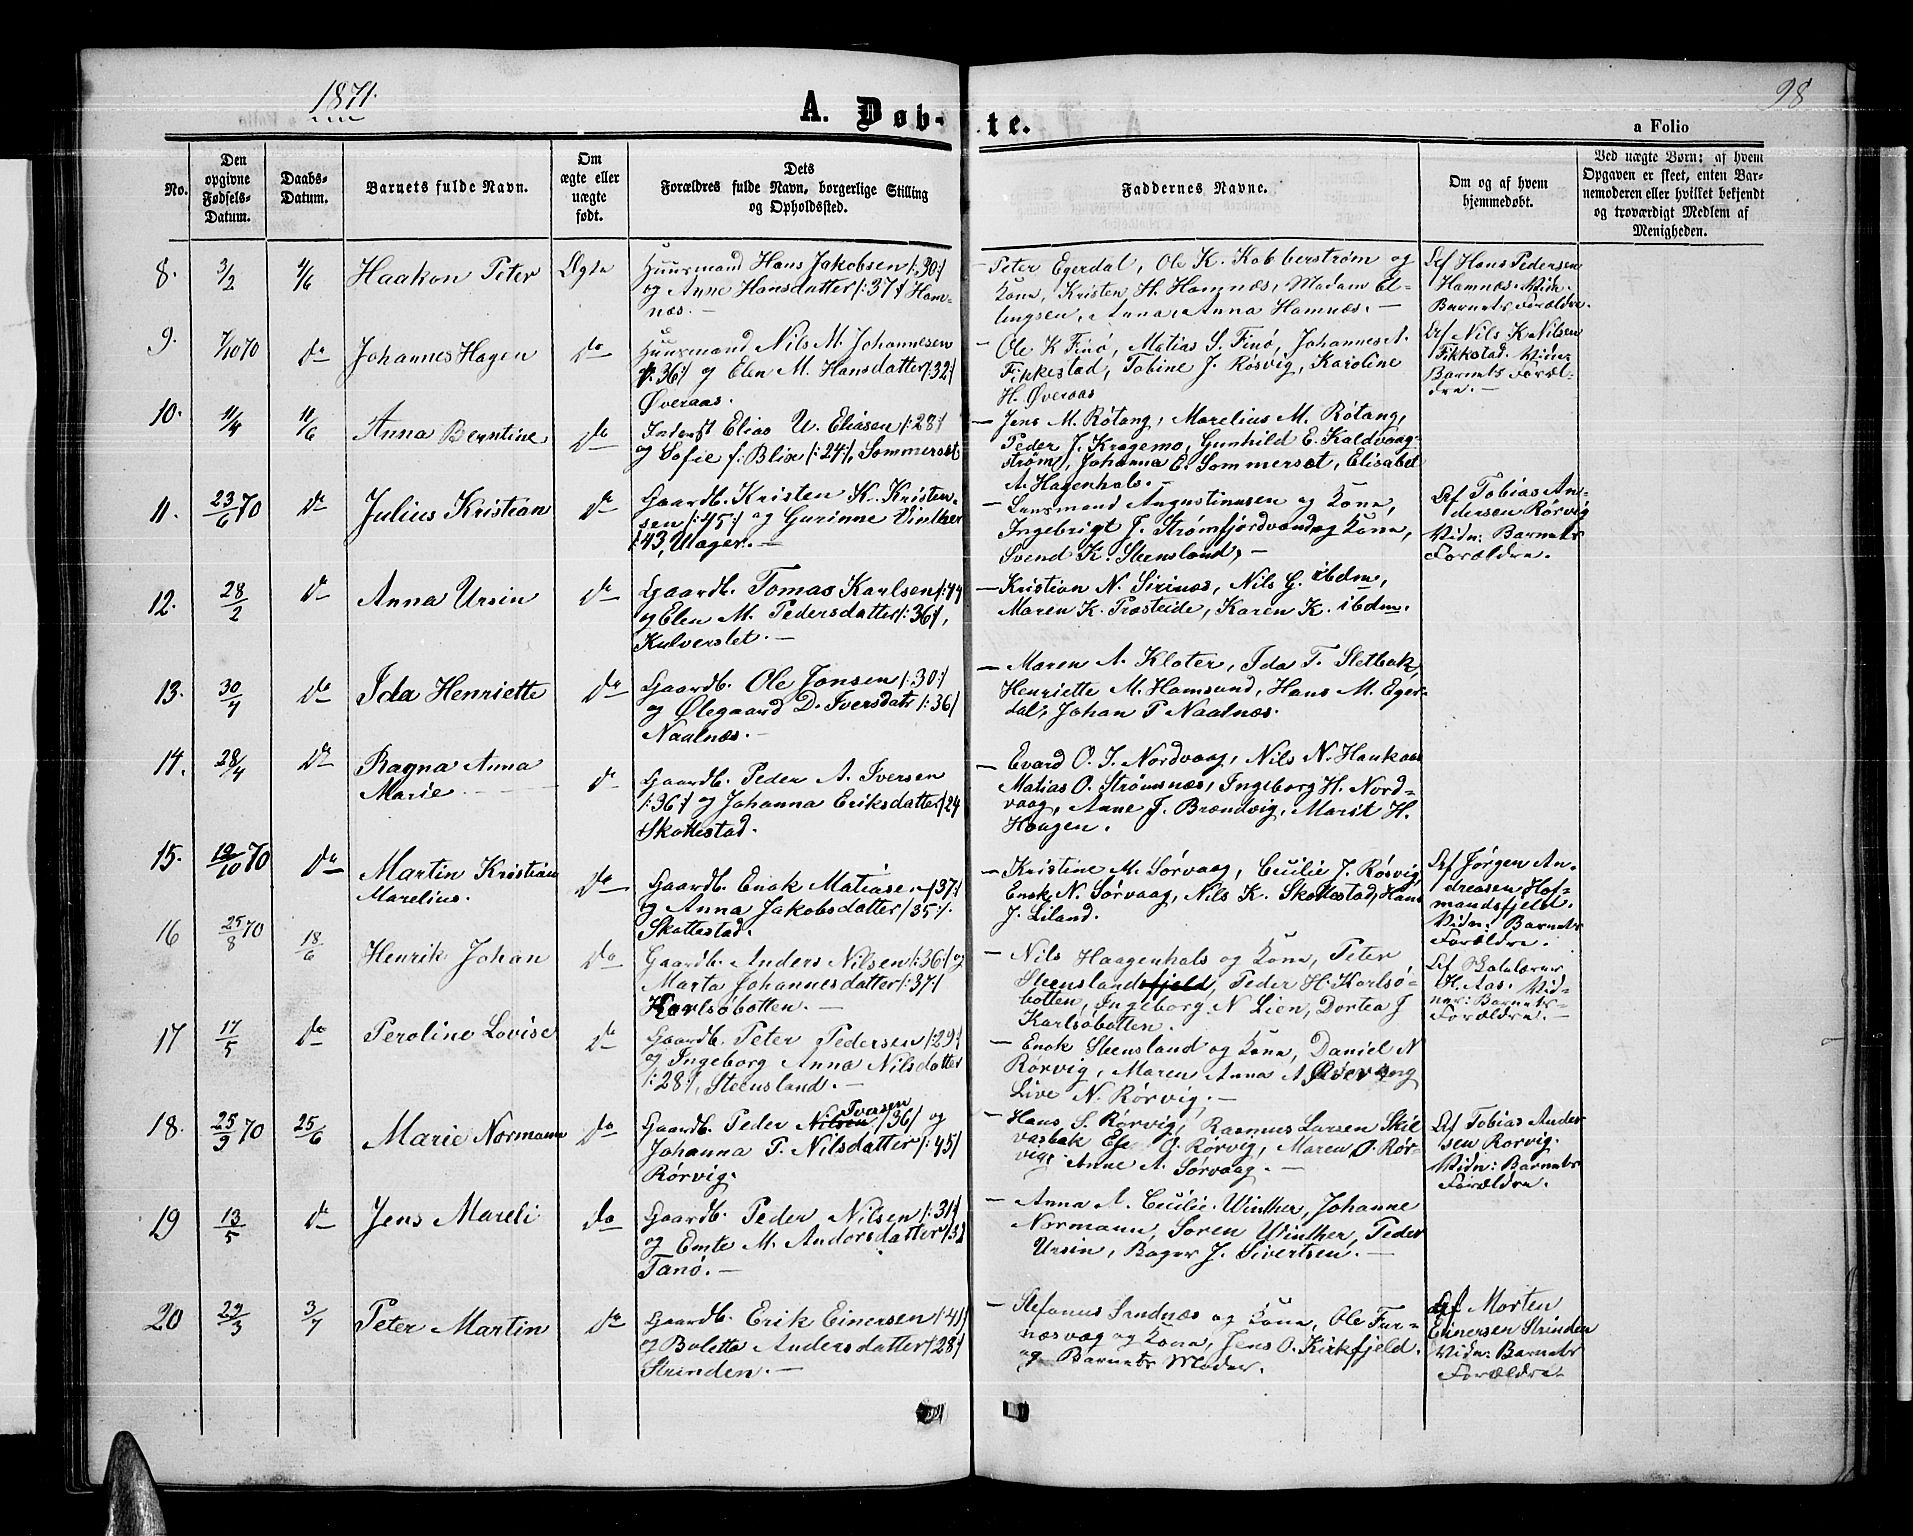 1871.
A. Døb-
te.
98
a Folio
No.
Den
opgivne
Fødsels-
Datum.
Daabs-
Datum.
Barnets fulde Navn.
Om
ægte eller
uægte
født.
Dets
Forældres fulde Navn, borgerlige Stilling
og Opholdssted.
Faddernes Navne.
Om og af hvem
hjemmedøbt.
Ved uægte Børn: af hvem
Opgaven er skeet, enten Bar-
nemoderen eller hvilket bekjendt
og troværdigt Medlem af
Menigheden.
8.
3/2
4/6
Haakon Peter
Ægte
Huusmand Hans Jakobsen /:30:/
og Anne Hansdatter /:37:/ Ham-
næs. —
— Peter Egerdal, Ole K. Kobberstrøm og
Kone, Kristen H. Hamnæs, Madam El-
lingsen, Anna Hamnæs. —
Af Hans Pedersen
Hamnæs. Vidn.
Barnets Forældre.
9.
7/10 70
do
Johannes Hagen
do
Huusmand Nils M. Johannesen
/:36:/ og Elen M. Hansdatter /:32:/
Øveraas.
— Ole K Finø, Matias S. Finø, Johannes A.
Fikkestad, Tobine J. Røsvig, Karoline
H. Øveraas
Af Nils K. Nilsen
Fikkstad. Vidn:
Barnets Foræl-
dre. —
10.
11/4
11/6
Anna Berntine
do
Inderst Elias U. Eliasen /:28:/
og Sofie f: Blix /:24:/, Sommerset
— Jens M. Røtang, Marelius M. Røtang,
Peder J. Kragemo, Gunhild E. Kaldvaag-
strøm, Johanna E. Sommerset, Elisabet
A. Hagenhals. —
11.
23/6 70
do
Julius Kristian
do
Gaardb. Kristen K. Kristen-
sen /:45:/ og Gurinne Vinther
/:43, Ulager. —
— Lensmand Augustinusen og Kone,
Ingebrigt J. Strømfjordvand og Kone,
Svend K. Steensland, —
Af Tobias An-
dersen Rørvig
Vidn: Barnets
Forældre.
12.
28/2
do
Anna Ursin
do
Gaardb. Tomas Karlsen /:44
og Elen M. Pedersdatter /:36:/,
Kulverstet. —
— Kristian N. Sirinæs, Nils G. ibdm,
Maren K. Præsteide, Karen K. ibdm.
13.
30/4
do
Ida Henriette
do
Gaardb. Ole Jonsen /:30:/
og Ølegaard D. Iversdatr /:36/
Naalnæs. —
— Maren A. Kloter, Ida T. Sletbak,
Henriette M. Hamsund, Hans M. Eger-
dal, Johan P Naalnæs.
14.
28/4
do
Ragna Anna
Marie
do
Gaardb. Peder A. Iversen
/:36:/ og Johanna Eriksdatter /24
Skottestad.
— Evard O. I. Nordvaag, Nils N. Haukaas
Matias O. Strømsnæs, Ingeborg H. Nord-
vaag, Anne J. Brændvig, Marit H.
Haagen.
15.
19/10 70
do
Martin Kristian
Marelius.
do
Gaardb. Enok Matiasen /37:/
og Anna Jakobsdatter /35:/.
Skottestad.
— Kristine M. Sørvaag, Cecilie J. Røsvig,
Enok N. Sørvaag, Nils K. Skottestad, Hans
J. Liland.
Af Jørgen An-
dreasen Hof-
mandsfjeld.
Vidn: Barnets
Forældre.
16
25/8 70
18/6
Henrik Johan
do
Gaardb. Anders Nilsen /:36:/ og
Marta Johannesdatter /:37:/
Karlsøbotten. —
— Nils Haagenhals og Kone, Peter
Steenslandsfjeld, Peder H. Karlsø-
botten, Ingeborg N Lien, Dortea J
Karlsøbotten.
Af Skolelærer
H. Aas. Vid-
ner: Barnets
Forældre. —
17
17/5
do
Peroline Lovise
do
Gaardb. Peter Pedersen /:29:/
og Ingeborg Anna Nilsdatter
/:28:/, Steensland. —
— Enok Steensland og Kone, Daniel N
Rørvig, Maren Anna A.
Live N. Rørvig. —
18.
25/9 70
25/6
Marie Normann
do
Gaardb. Peder Nilsen Iversen /36/ og
Johanna P. Nilsdatter /:45/
Rørvig.
— Hans S. Rørvig, Rasmus Larsen Skil-
vasbak O. Rørvig, Maren O. Rør-
vig. Anne A. Sørvaag. —
Af Tobias Ander
sen Rørvig.
Vidn: Barnets
Forældre.
19
13/5
do
Jens Mareli
do
Gaardb. Peder Nilsen /:31/
og Emte M. Andersdatter /32
Tanø. —
— Anna A. Cecilie Winther, Johanne
Normann, Søren Winther, Peder
Ursin, Bager J. Sivertsen. —
20
29/3
3/7
Peter Martin
do
Gaardb. Erik Einersen /:41/
og Boletta Andersdatter /28/
Strinden. —
— Stefanus Sandnæs og Kone, Ole Fur-
næsvaag og Kone, Jens O. Kirkfjeld.
og Barnets Moder.
Af Morten
Einersen Strinden
Vidn: Barnets
Forældre.